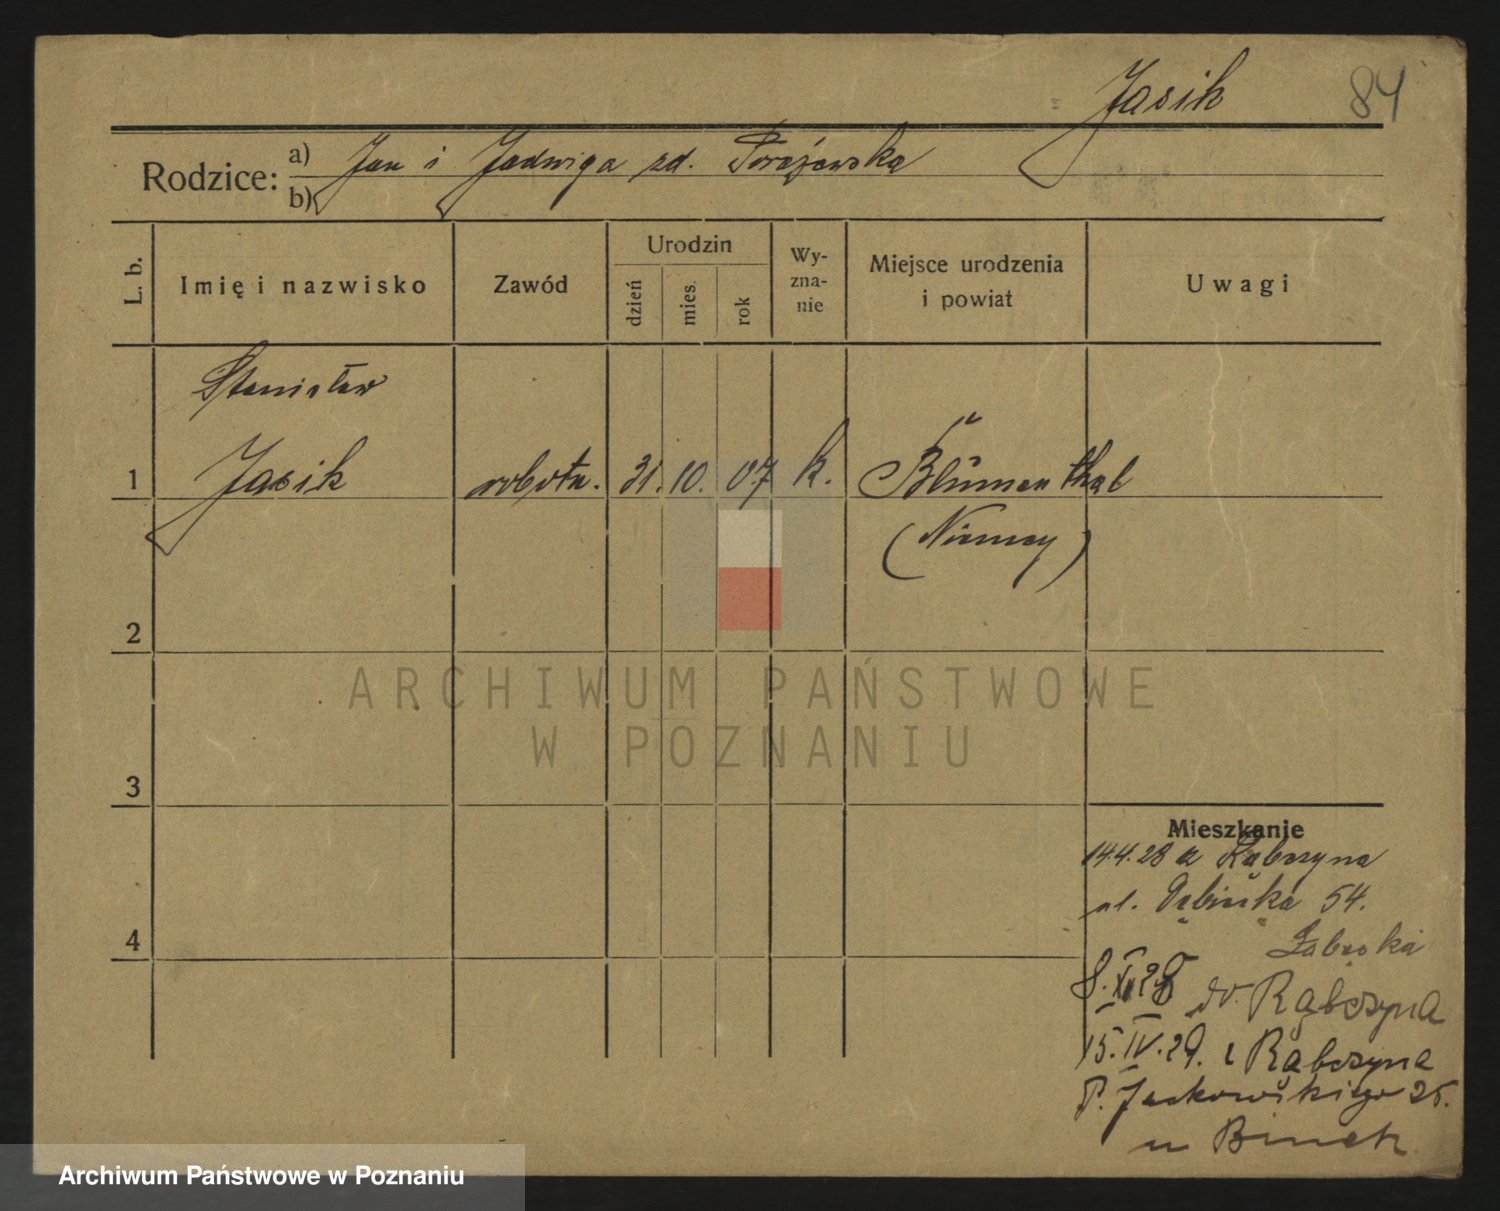 Jasik
84
Rodzice: a) Jan i Jadwiga zd.
b)
L. b.
Imię i nazwisko
Zawód
Urodzin
dzień
mies.
rok
Wy-
zna-
nie
Miejsce urodzenia
i powiat
Uwagi
Stanisław
1 Jasik robotn. 31. 10. 07 k. Blümenthal
(Niemcy)
2
3
4
Mieszkanie
14.4.28 z Rąbczyna
ul. 54.
8.XI.28 do Rąbczyna
15.IV.29. z Rąbczyna
P. Jackowskiego 25.
u
ARCHIWUM PAŃSTWOWE
W POZNANIU
Archiwum Państwowe w Poznaniu